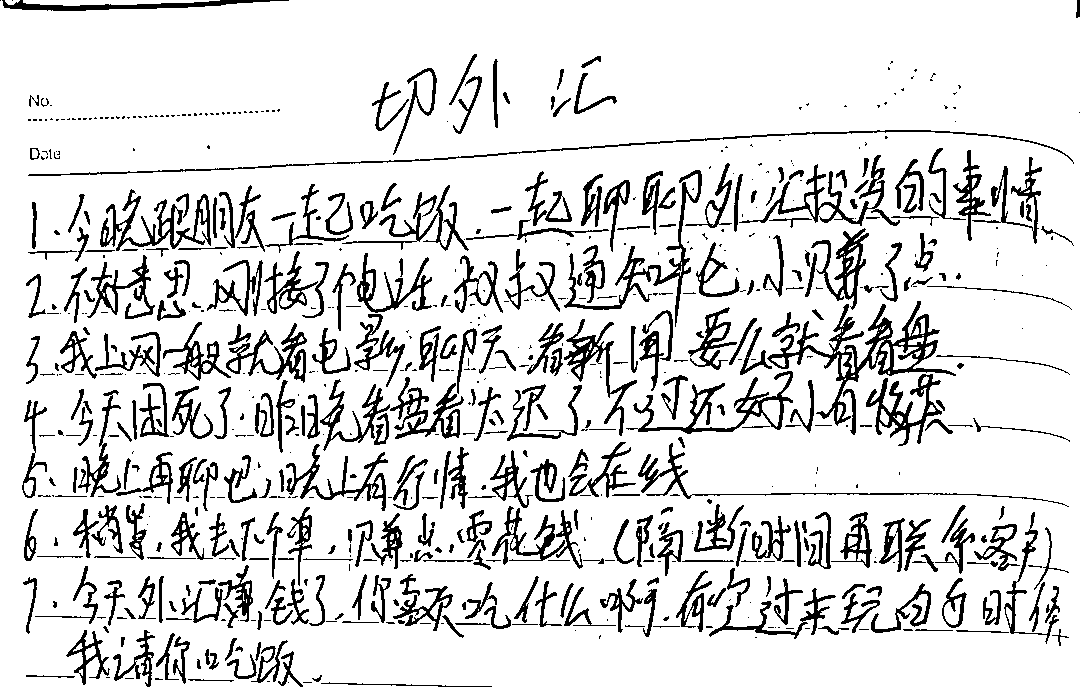 No.
切外汇
Date
1.今晚跟朋友一起吃饭.一起聊聊外汇投资的事情.
2.不好意思.刚接了个电话,叔叔通知平仓,小赚了点.
3.我上网一般就看电影,聊天.看新闻 要么就看看盘.
4.今天困死了.昨晚看盘看太迟了,不过还好小有收获、
5、晚上再聊吧,晚上有行情.我也会在线
6.稍等,我去下个单,赚点零花钱.(隔断时间再联系客户)
7.今天外汇赚钱了,你喜欢吃什么啊.有空过来玩的时候
我请你吃饭.